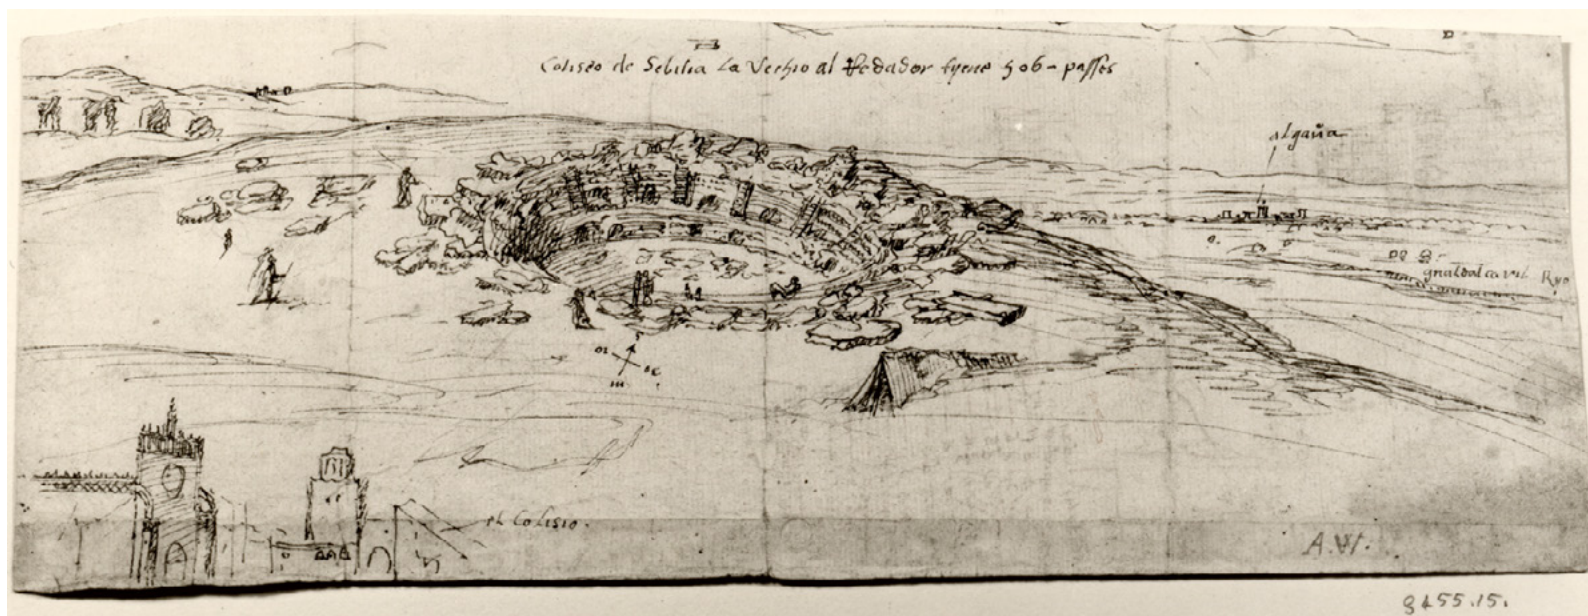 Coliseo de Sebilia La Vechio al Redador tyene 506 - passes
algaua
gualdalcavil Ryo
s
or
oc
m
el Colisio.
A.W.
8455.15.